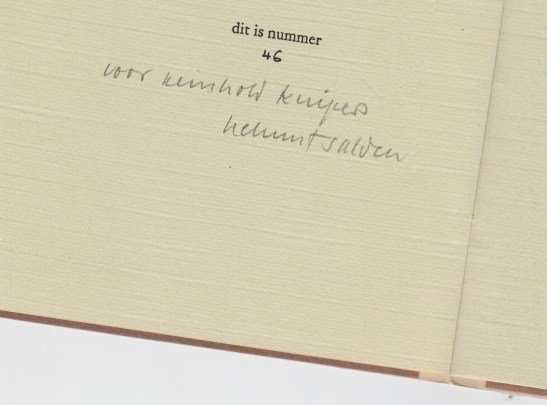 dit is nummer
46
voor reinhold kuipers
helmut salden